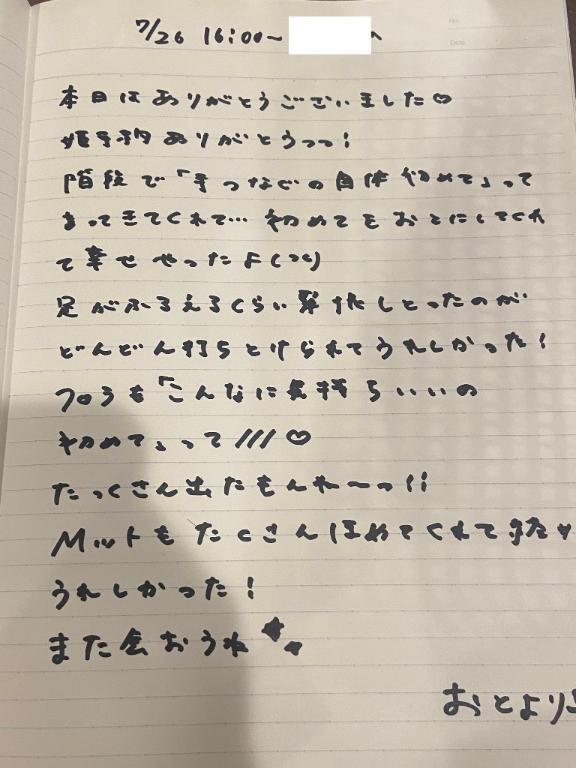 7/26 16:00~ へ
本日はありがとうございました♡
姫予約ありがとうっっ!
階段で「手つなぐの自体初めて」って
言ってきてくれて… 初めてをおとにしてくれ
て幸せやったよ(><)
足がふるえるくらい緊張しとったのが
どんどん打ちとけられてうれしかった!
フロうも「こんなに気持ちいいの
初めて」って///♡
たっくさん出たもんね〜っ!!
Mットもたくさんほめてくれてまた♡
うれしかった!
また会おうね
おとより
No.
Date